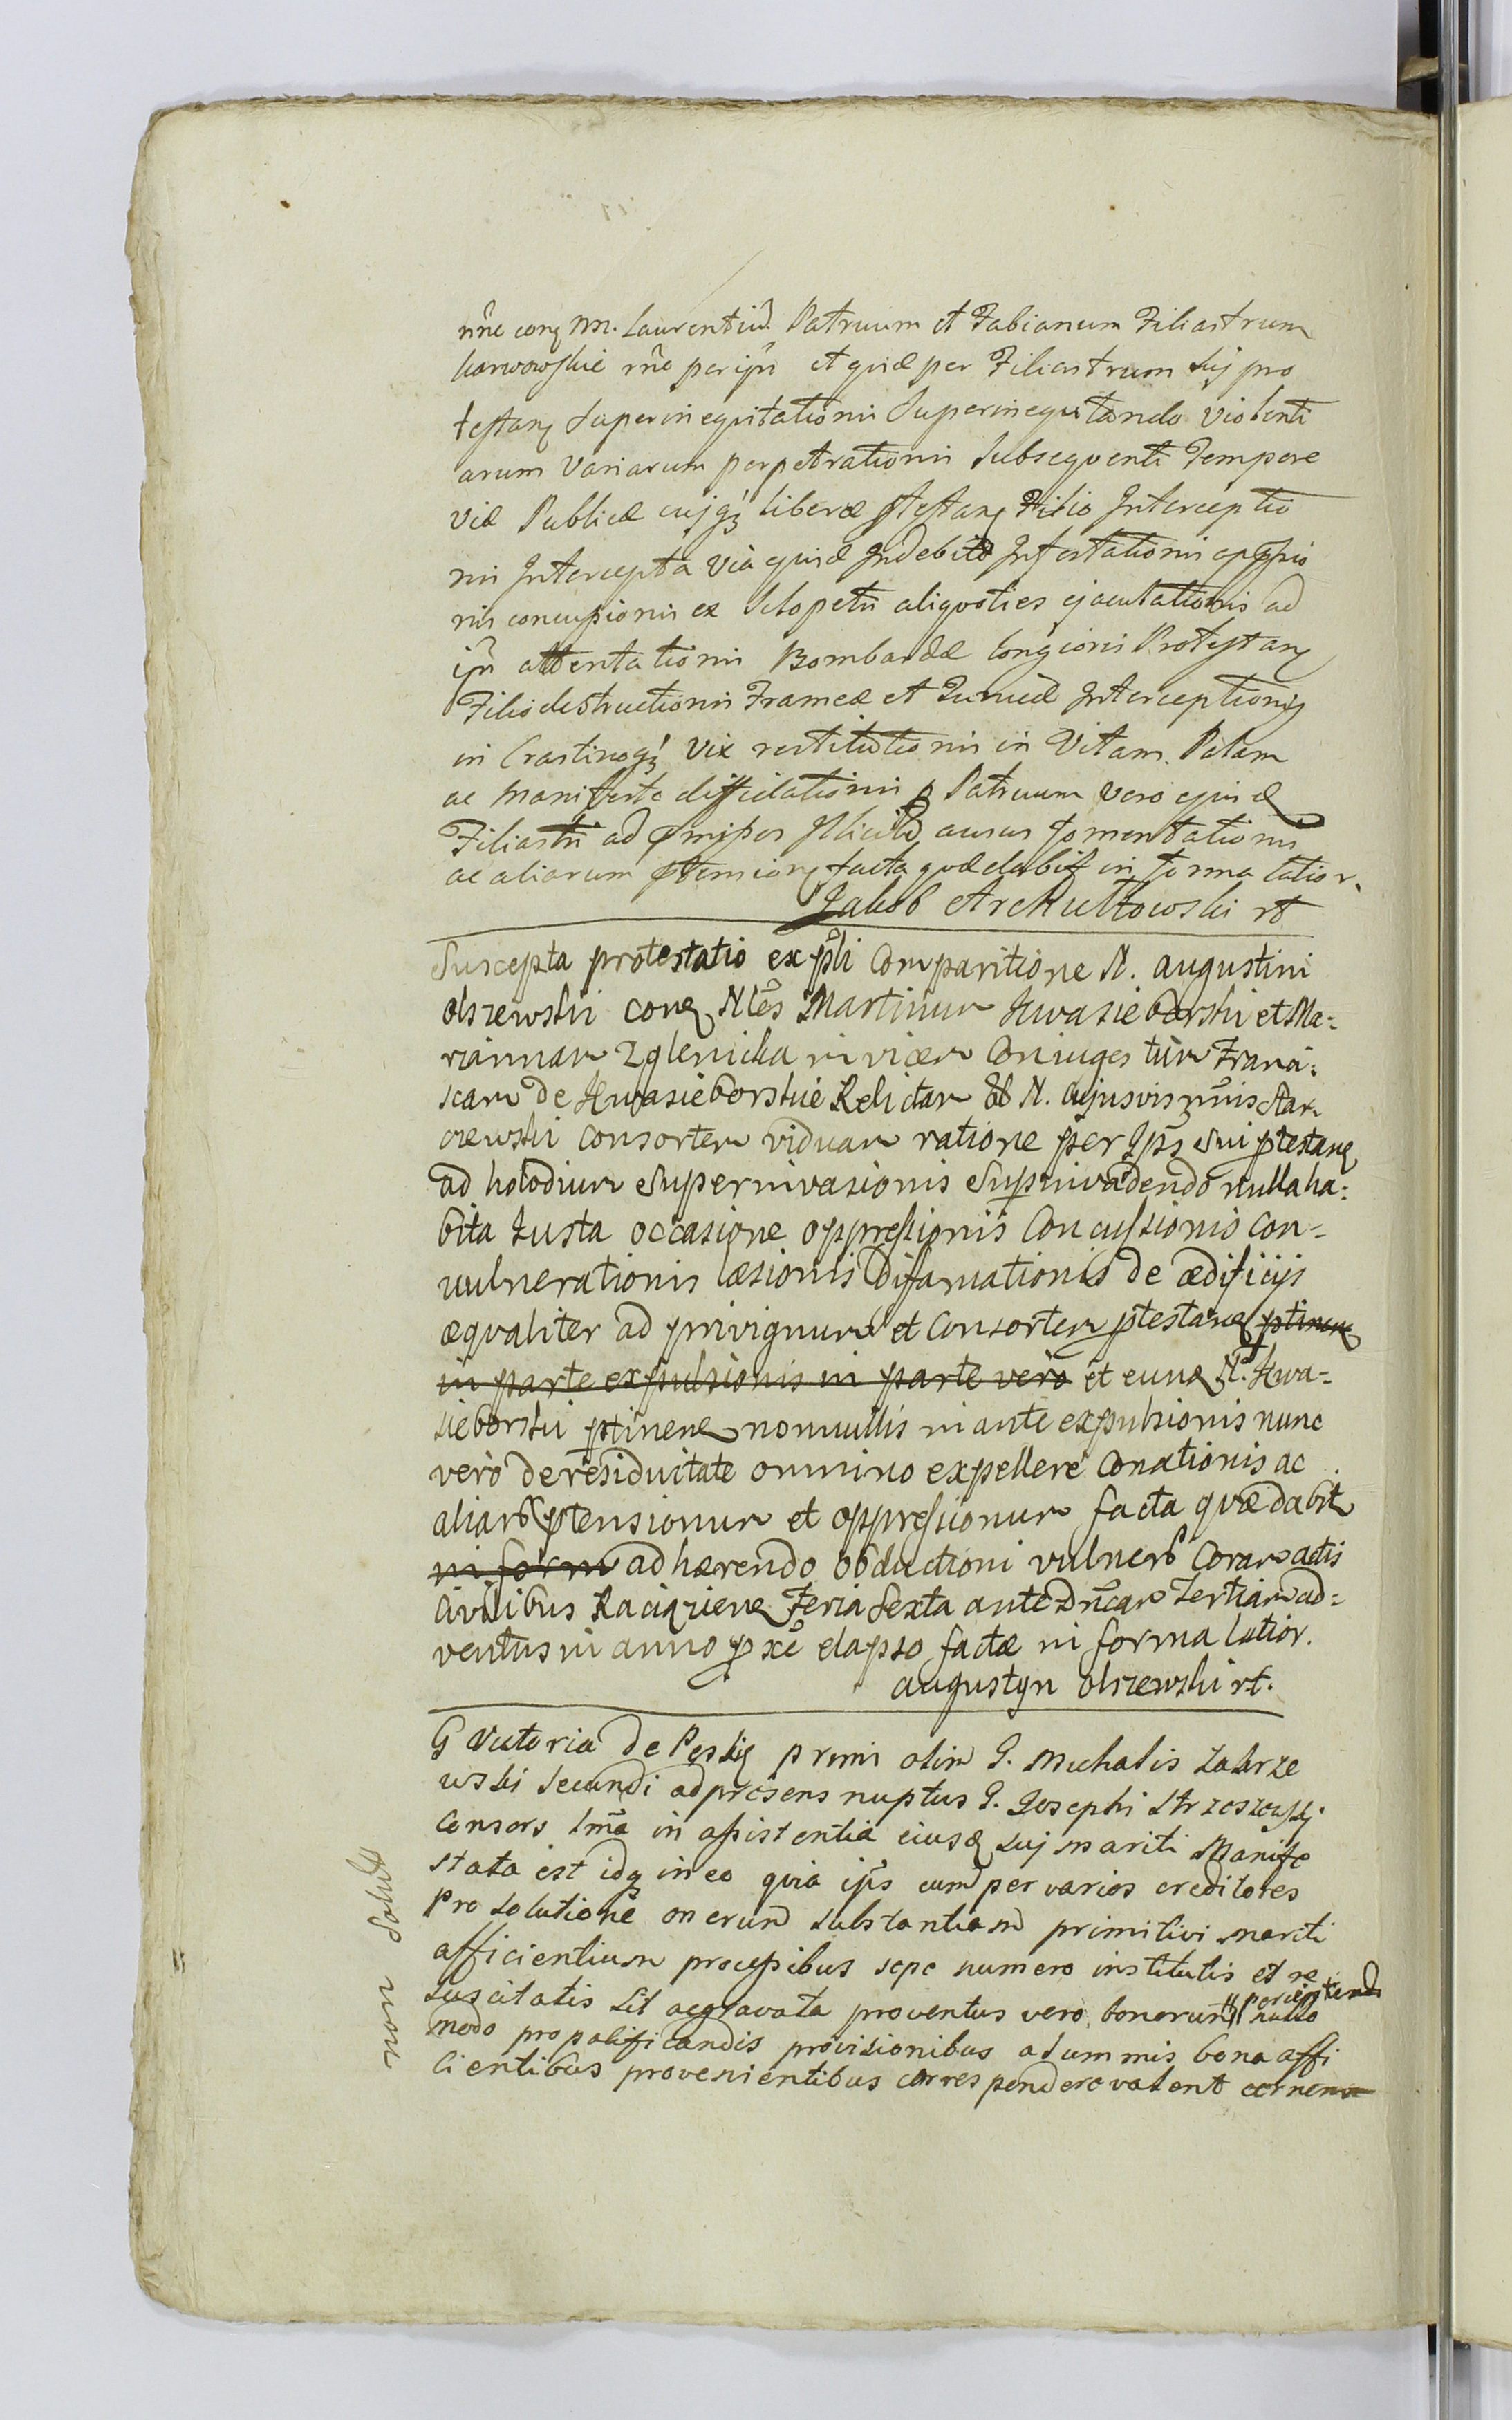 nne conq NN. Laurentiũ Patruum et Fabianum Filiastrum
Karwowskie rne per ipũ et quidē per Filiastrum sui pro
testanq superinequitationis superinequitando violenti
arum variarum perpetrationis subsequenti Tempore
viæ Publicæ cujqꝫ liberæ ptestanq Filio Interceptio
nis Intercepta via ejusd Indebitæ Infestationis oppssio
nis concussionis ex sclopetis aliquoties ejaculationis ad
ipũ attentationis Bombardæ longioris Protestanq
Filio destructionis Frameæ et Tunicæ Interceptionis
in Crastinoqꝫ vix restitutionis in Vitam Palam
ac manifeste diffidationis p Patruum vero ejusd
Filiastri ad pmissos Illicitũ ausus fomentationis
ac aliarum ptensionq facta quæ dabit in forma latior.
Jakob Archutowski rt
Suscepta protestatio ex psli Comparitione N. augustini
olszewski conq Nles Martinum Kwasieborski et Ma-
riannam Zglenicka invicem Coniuges tum Franci-
scam de Kwasieborskie Relictam olim N. cujusvis nnis Star
czewski consortem viduam ratione per Ipss sui ptestanq
ad holodium Superinvasionis Supinvadendo nulla ha-
bita Iusta occasione oppressionis Concussionis con-
vulnerationis læsionis Difamationis de ædificijs
æqualiter ad privignum et Consortem ptestanq ptinen
in parte expulsionis in parte vero et eund N. Kwa-
sieborski ptinenq nonnullis in ante expulsionis nunc
vero de residuitate omnino expellere Conationis ac
aliarũ ptensionum et oppressionum facta quæ dabit
in form adhærendo obductioni vulnerũ Coram actis
Civilibus Raciązienq Feria Sexta ante Dñcam Tertiam ad-
ventus in anno pxe elapso factæ in forma latior.
augustyn olszewski rt.
G Victoria de Peskie primi olim G. Michalis Zakrze
wski secundi ad præsens nuptus G. Josephi Strzeszewski
Consors sma in assistentia eiusd sui mariti Manife
stata est idq in eo quia ips cum per varios creditores
Pro solutione onerum substantiam primitivi mariti
afficientium processibus sepe numero institutis et re
suscitatis sit aggravata proventus vero bonorum nullo
modo pro palificandis provisionibus a summis bona affi
cientibus provenientibus correspondere valent cernens
non solvit